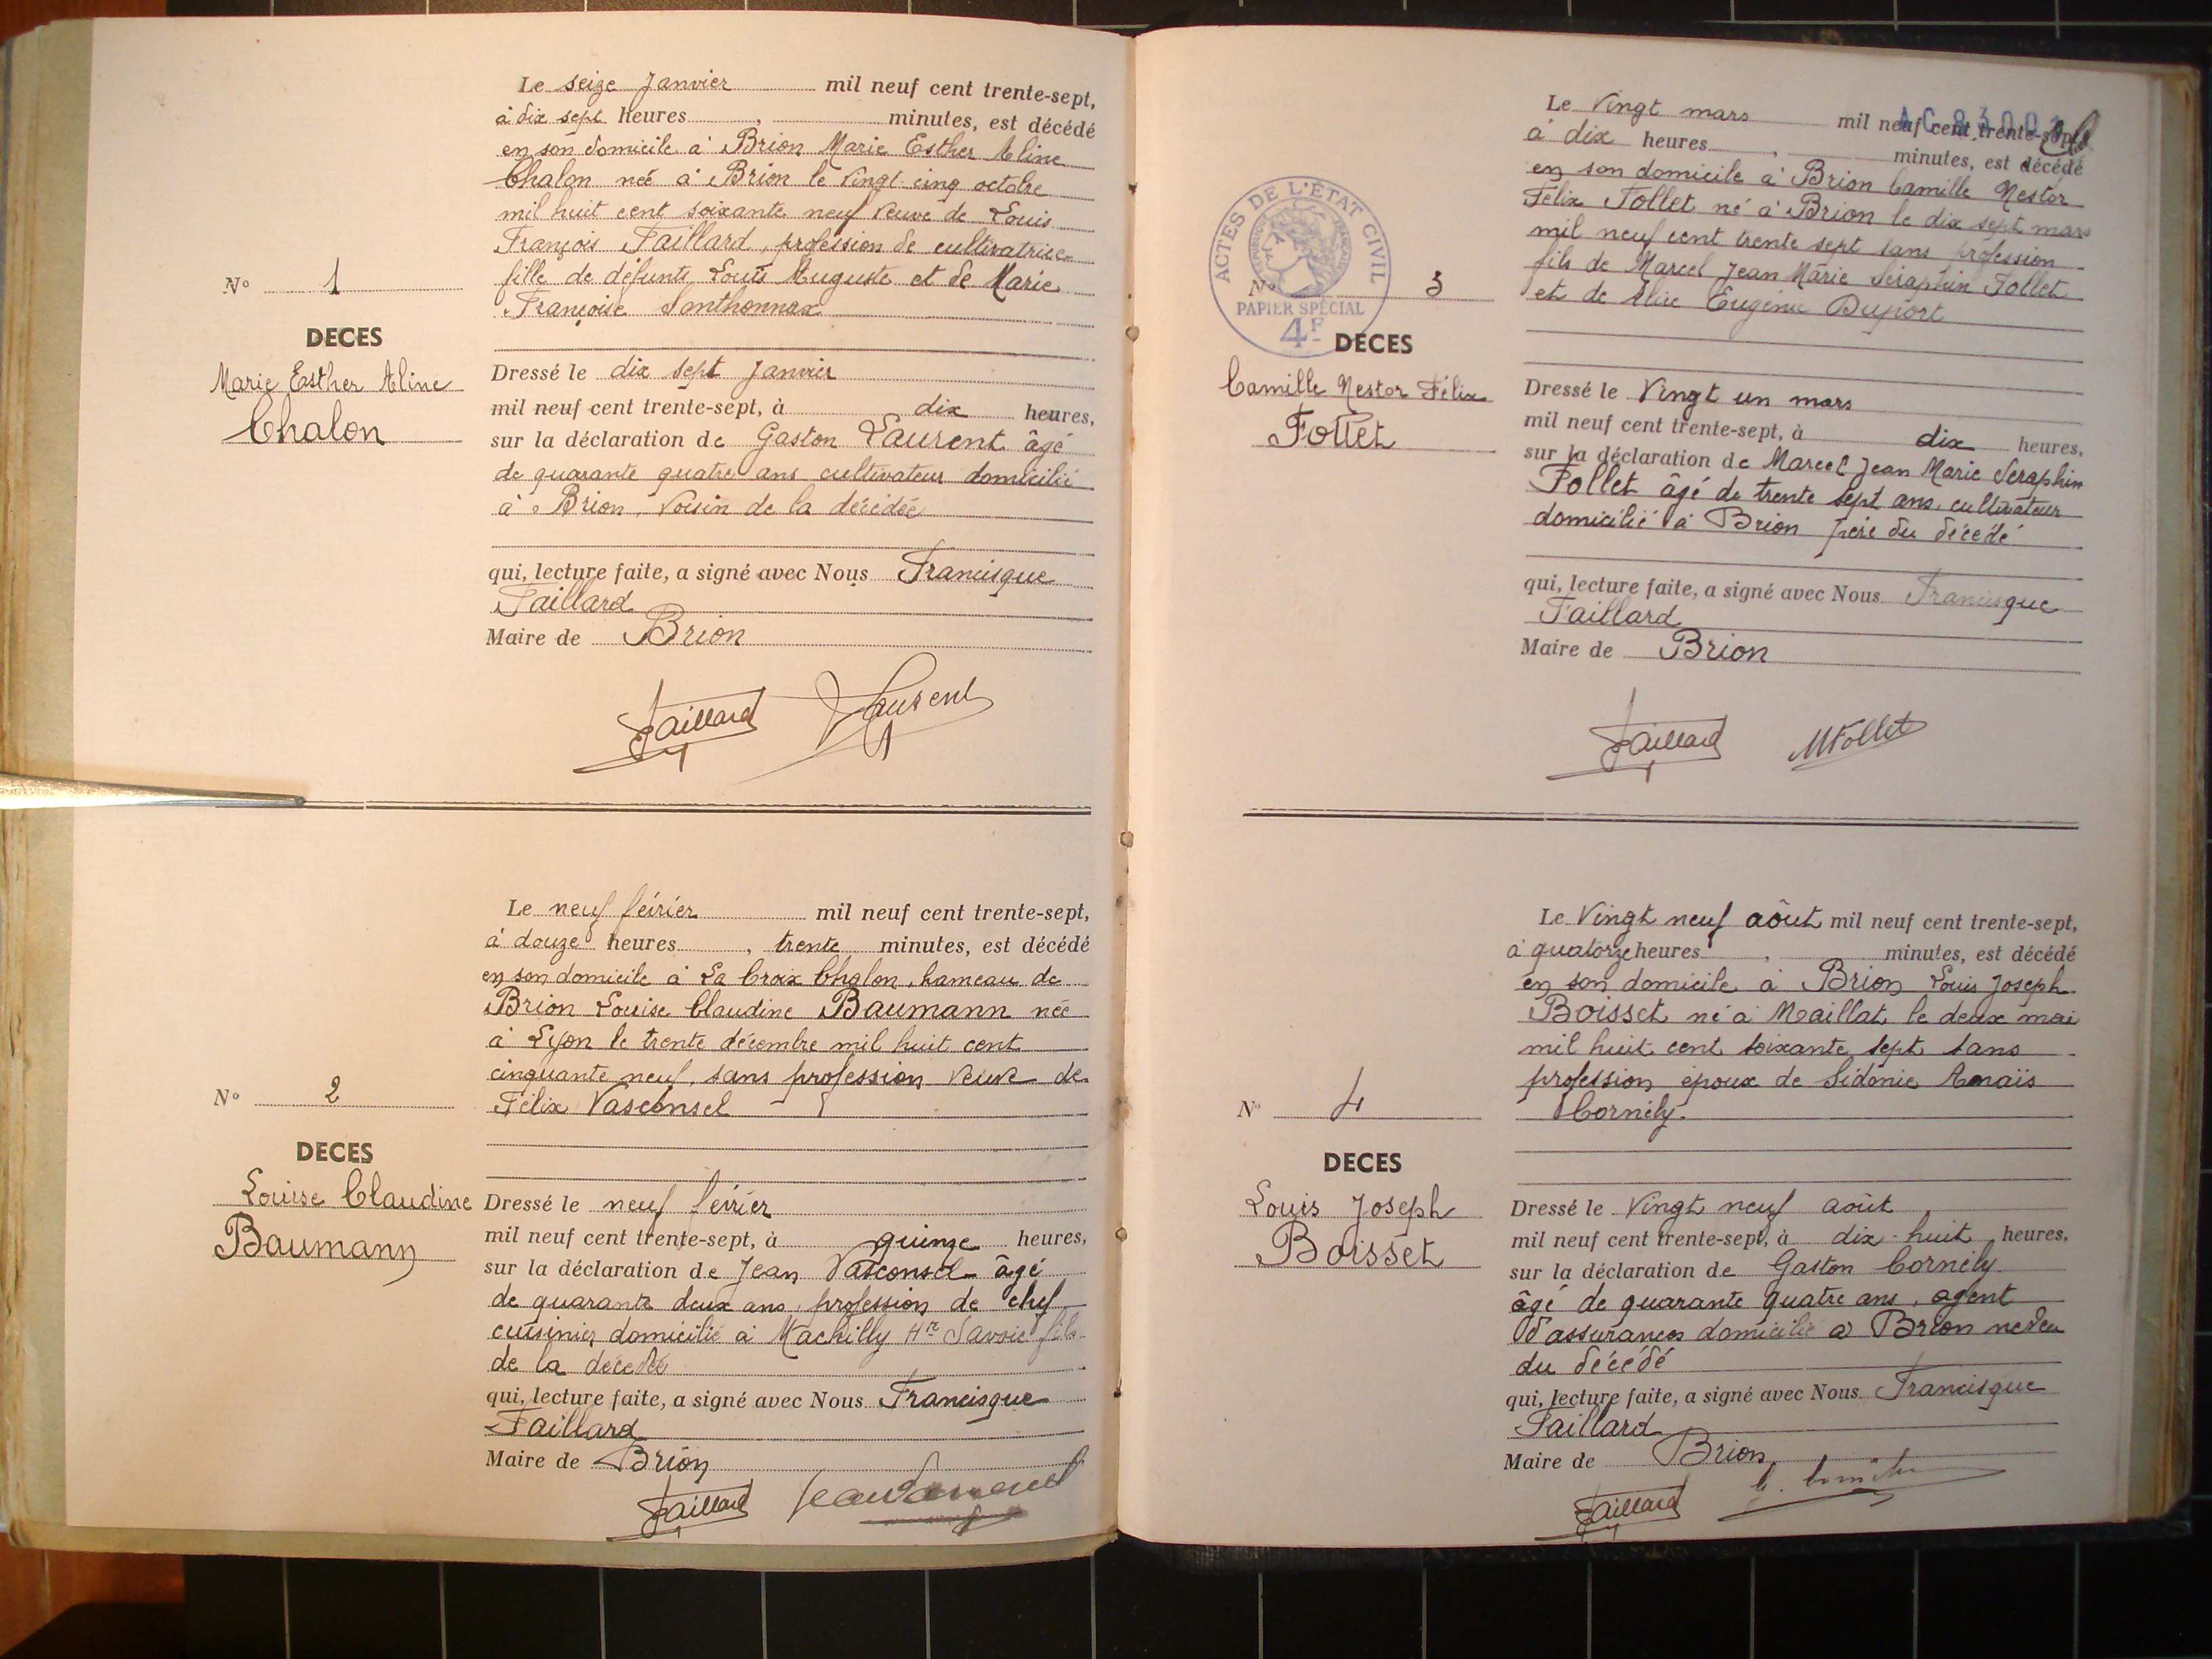 Le seize Janvier mil neuf cent trente-sept,
à dix sept heures , minutes, est décédé
en son domicile à Brion Marie Esther Aline
Chalon née à Brion le vingt-cinq octobre
mil huit cent soixante neuf veuve de Louis
François Taillard, profession de cultivatrice
fille de défunts Louis Auguste et de Marie
Françoise Santhonnax
N° 1
DECES
Marie Esther Aline
Chalon
Dressé le dix sept Janvier
mil neuf cent trente-sept, à dix heures,
sur la déclaration de Gaston Laurent âgé
de quarante quatre ans cultivateur domicilié
à Brion, voisin de la décédée
qui, lecture faite, a signé avec Nous Francisque
Taillard
Maire de Brion
Taillard Laurent
Le neuf février mil neuf cent trente-sept,
à douze heures , trente minutes, est décédé
en son domicile à La Croix Chalon, hameau de
Brion Louise Claudine Baumann née
à Lyon le trente décembre mil huit cent
cinquante neuf, sans profession veuve de
Félix Vasconsel
N° 2
DECES
Louise Claudine
Baumann
Dressé le neuf février
mil neuf cent trente-sept, à quinze heures,
sur la déclaration de Jean Vasconsel âgé
de quarante deux ans, profession de chef
cuisinier, domicilié à Machilly Hte Savoie fils
de la décédée
qui, lecture faite, a signé avec Nous Francisque
Taillard
Maire de Brion
Taillard
Le vingt mars mil neuf cent trente-sept
à dix heures , minutes, est décédé
en son domicile à Brion Camille Nestor
Félix Follet né à Brion le dix sept mars
mil neuf cent trente sept sans profession
fils de Marcel Jean Marie Séraphin Follet
et de Alice Eugénie Duport
ACTES DE L'ÉTAT CIVIL
PAPIER SPÉCIAL
4F
N° 3
DECES
Camille Nestor Félix
Follet
Dressé le Vingt un mars
mil neuf cent trente-sept, à dix heures,
sur la déclaration de Marcel Jean Marie Seraphin
Follet âgé de trente sept ans, cultivateur
domicilié à Brion père du décédé
qui, lecture faite, a signé avec Nous Francisque
Taillard
Maire de Brion
Taillard MFollet
Le Vingt neuf aôut mil neuf cent trente-sept,
à quatorze heures , minutes, est décédé
en son domicile à Brion Louis Joseph
Boisset né à Maillat le deux mai
mil huit cent soixante sept sans
profession époux de Sidonie Anaïs
Cornély.
N° 4
DECES
Louis Joseph
Boisset
Dressé le Vingt neuf août
mil neuf cent trente-sept, à dix-huit heures,
sur la déclaration de Gaston Cornély
âgé de quarante quatre ans, agent
d'assurances domicilié à Brion neveu
du décédé
qui, lecture faite, a signé avec Nous Francisque
Taillard
Maire de Brion
Taillard